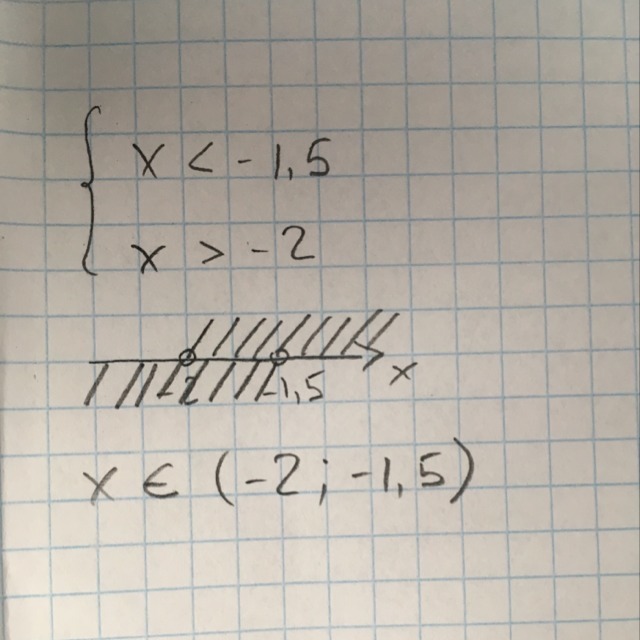 x < -1,5
x > -2
-2 -1,5 x
x ∈ (-2; -1,5)